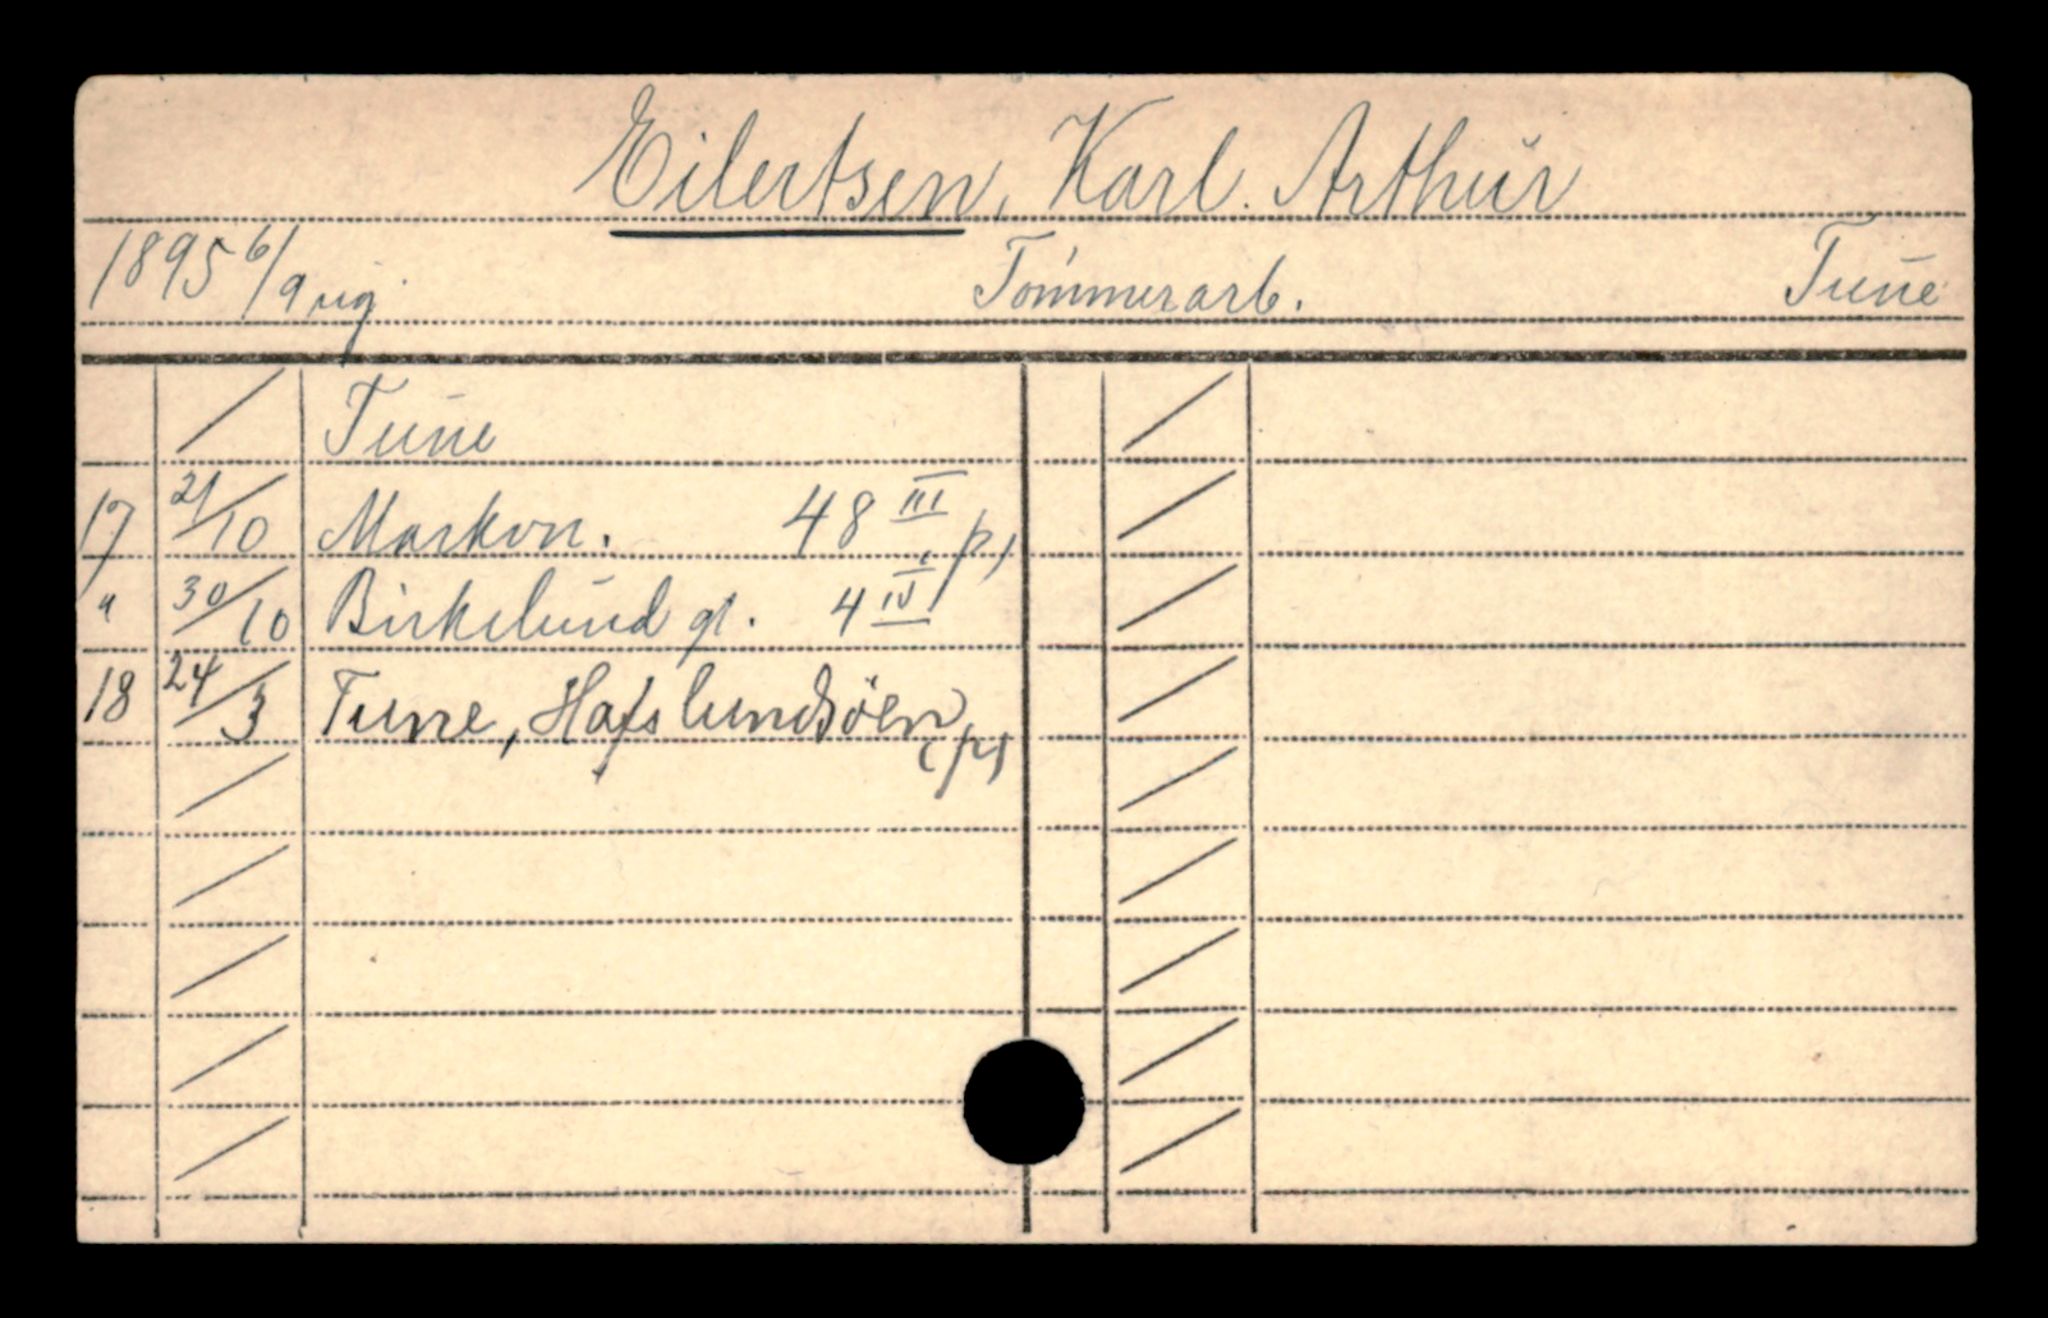 Eilertsen, Karl. Arthur
1895 6/9 ug. Tømmerarb. Tune
Tune
17 21/10 Markvn. 48 III (p)
" 30/10 Birkelund gt. 4 IV
18 24/3 Tune, Hafslundsøen (p)